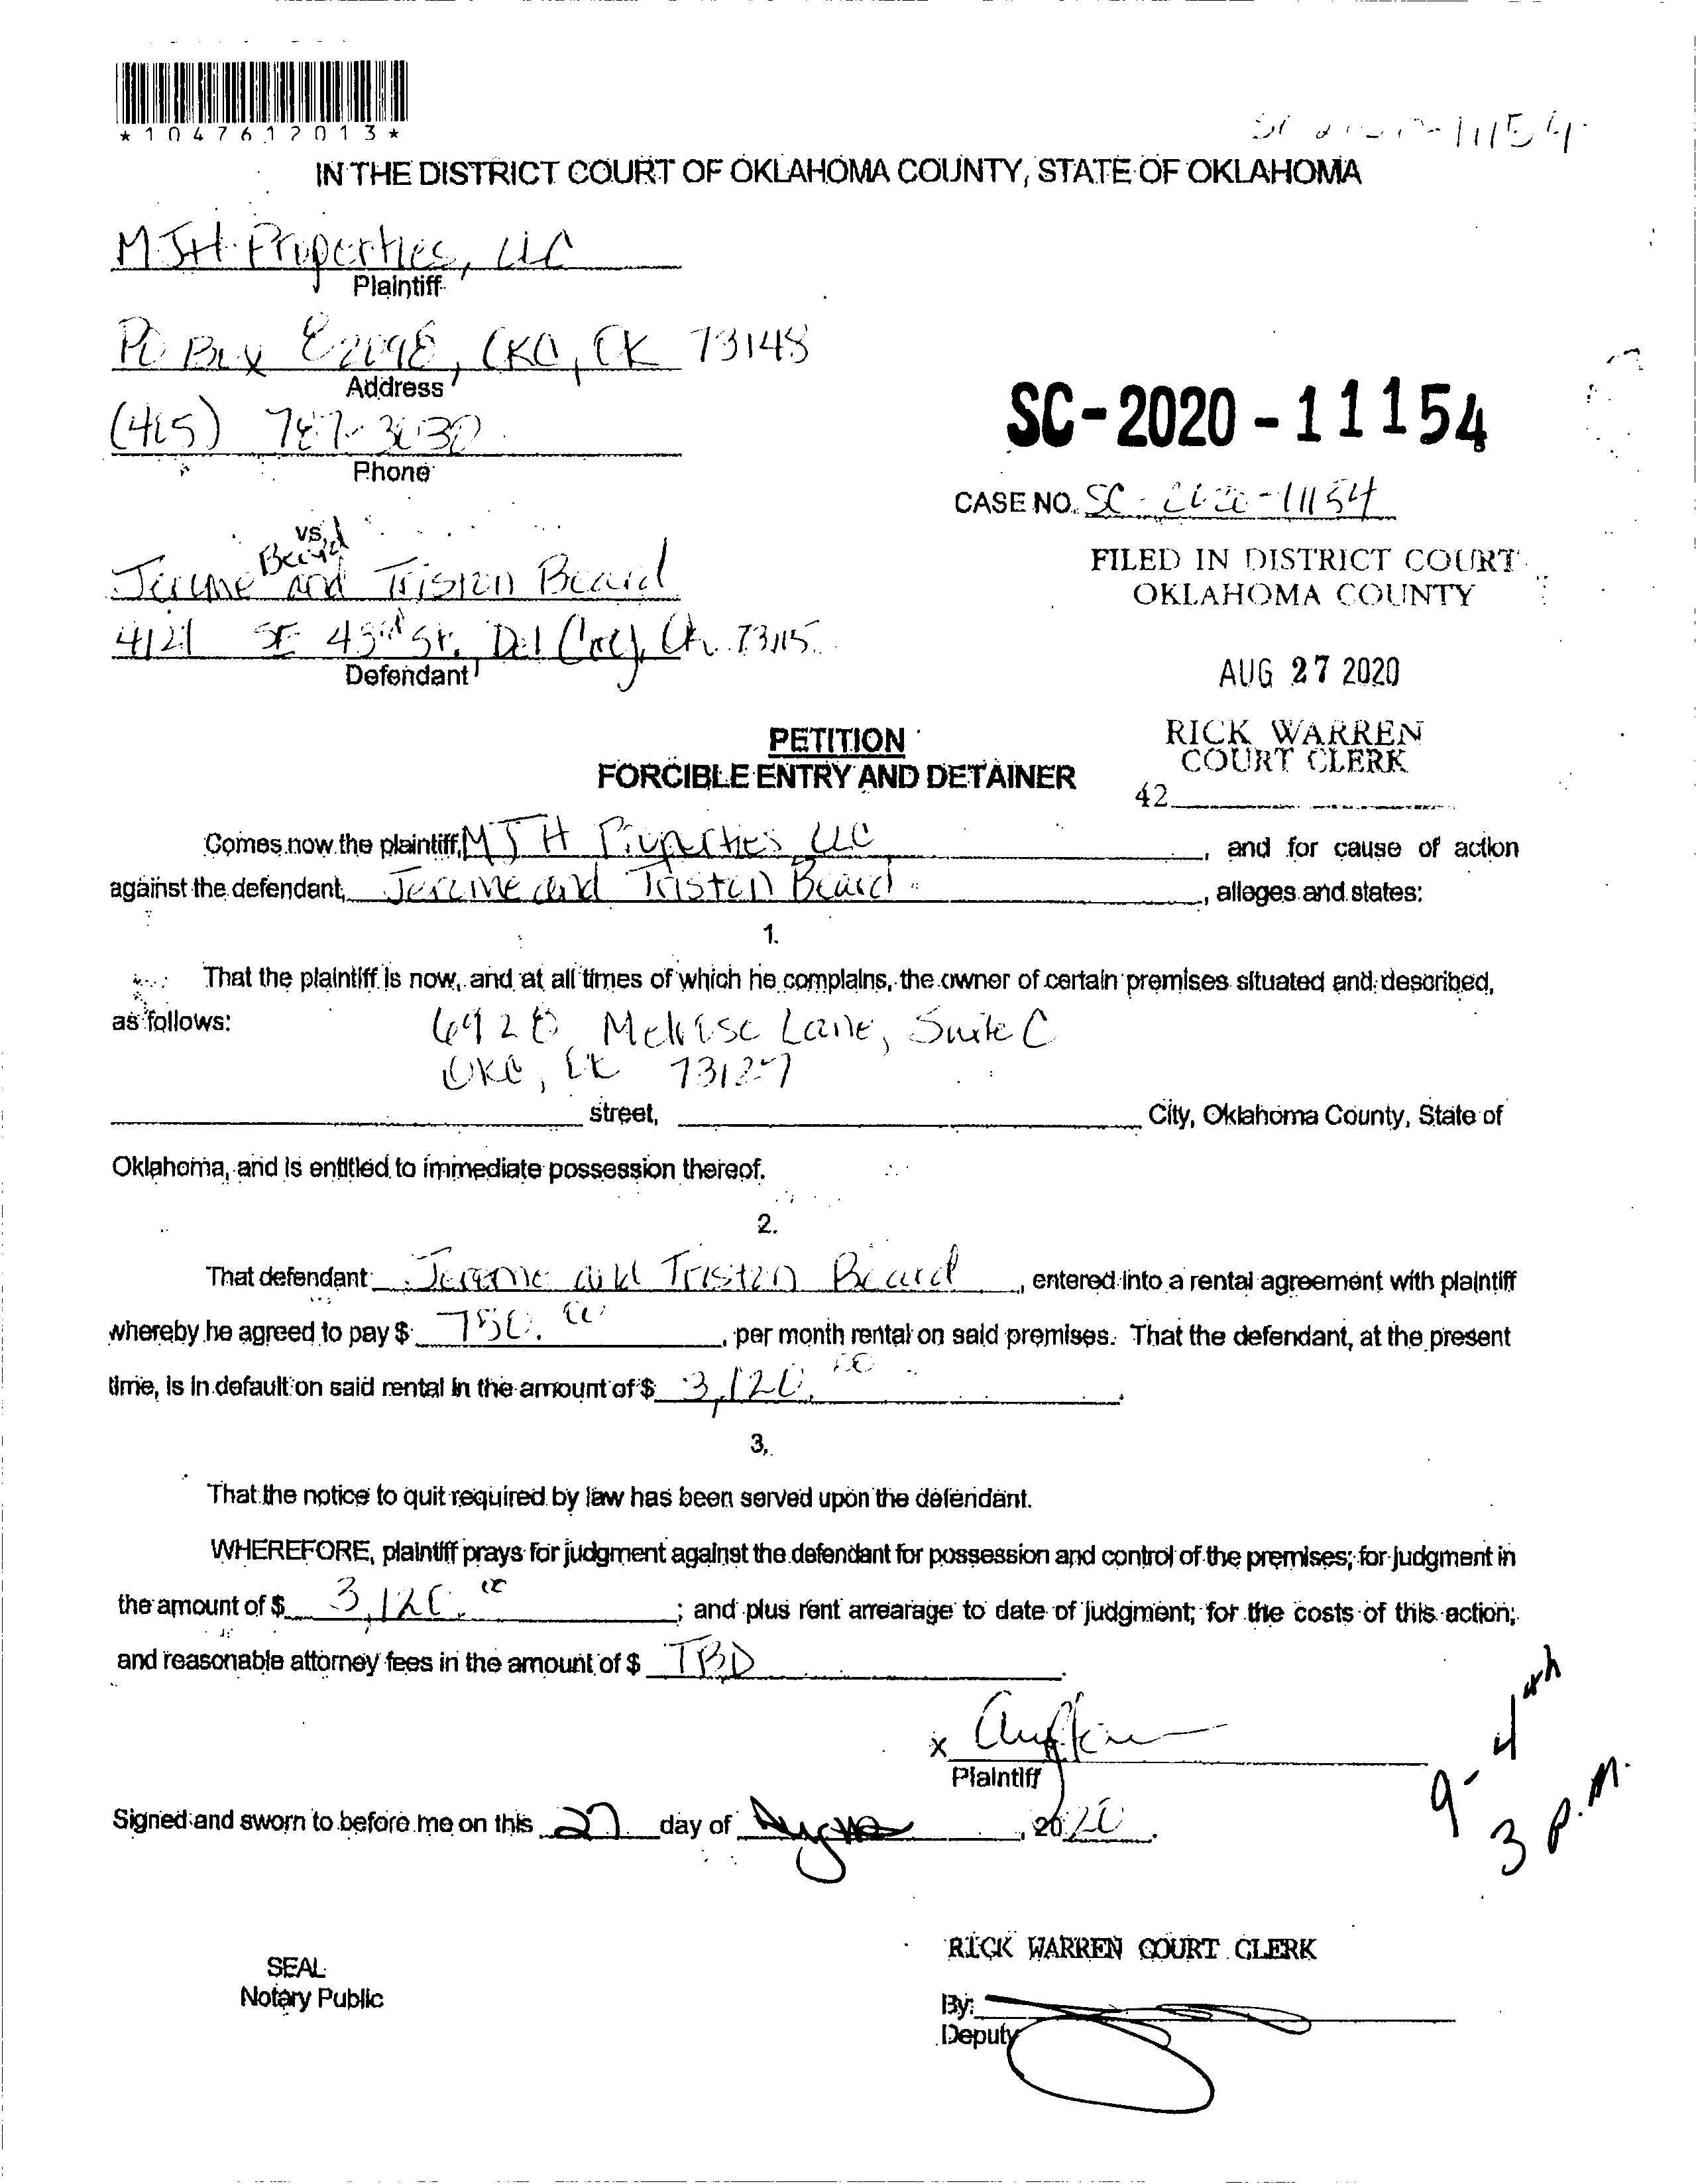 *1047612013*
11154
IN THE DISTRICT COURT OF OKLAHOMA COUNTY, STATE OF OKLAHOMA
MJH Properties, LLC
Plaintiff
PO Box 82098, OKC, OK 73148
Address
(405)
Phone
SC-2020-11154
CASE NO. SC-2020-11154
vs.
Beard
Jerome and Tristen Beard
4121 SE 43rd St. Del City, Ok 73115
Defendant
FILED IN DISTRICT COURT
OKLAHOMA COUNTY
AUG 27 2020
RICK WARREN
COURT CLERK
42
PETITION
FORCIBLE ENTRY AND DETAINER
Comes now the plaintiff, MJH Properties LLC, and for cause of action
against the defendant, Jerome and Tristen Beard, alleges and states:
1.
That the plaintiff is now, and at all times of which he complains, the owner of certain premises situated and described,
as follows: 6920 Melrose Lane, Suite C
OKC, OK 73127
street, City, Oklahoma County, State of
Oklahoma, and is entitled to immediate possession thereof.
2.
That defendant Jerome and Tristen Beard, entered into a rental agreement with plaintiff
whereby he agreed to pay $ 780.00, per month rental on said premises. That the defendant, at the present
time, is in default on said rental in the amount of $ 3,120.00.
3.
That the notice to quit required by law has been served upon the defendant.
WHEREFORE, plaintiff prays for judgment against the defendant for possession and control of the premises; for judgment in
the amount of $ 3,120.00; and plus rent arrearage to date of judgment; for the costs of this action;
and reasonable attorney fees in the amount of $ TBD.
x
Plaintiff
9-4th
3 p.m.
Signed and sworn to before me on this 27 day of August, 2020.
SEAL
Notary Public
RICK WARREN COURT CLERK
By:
Deputy